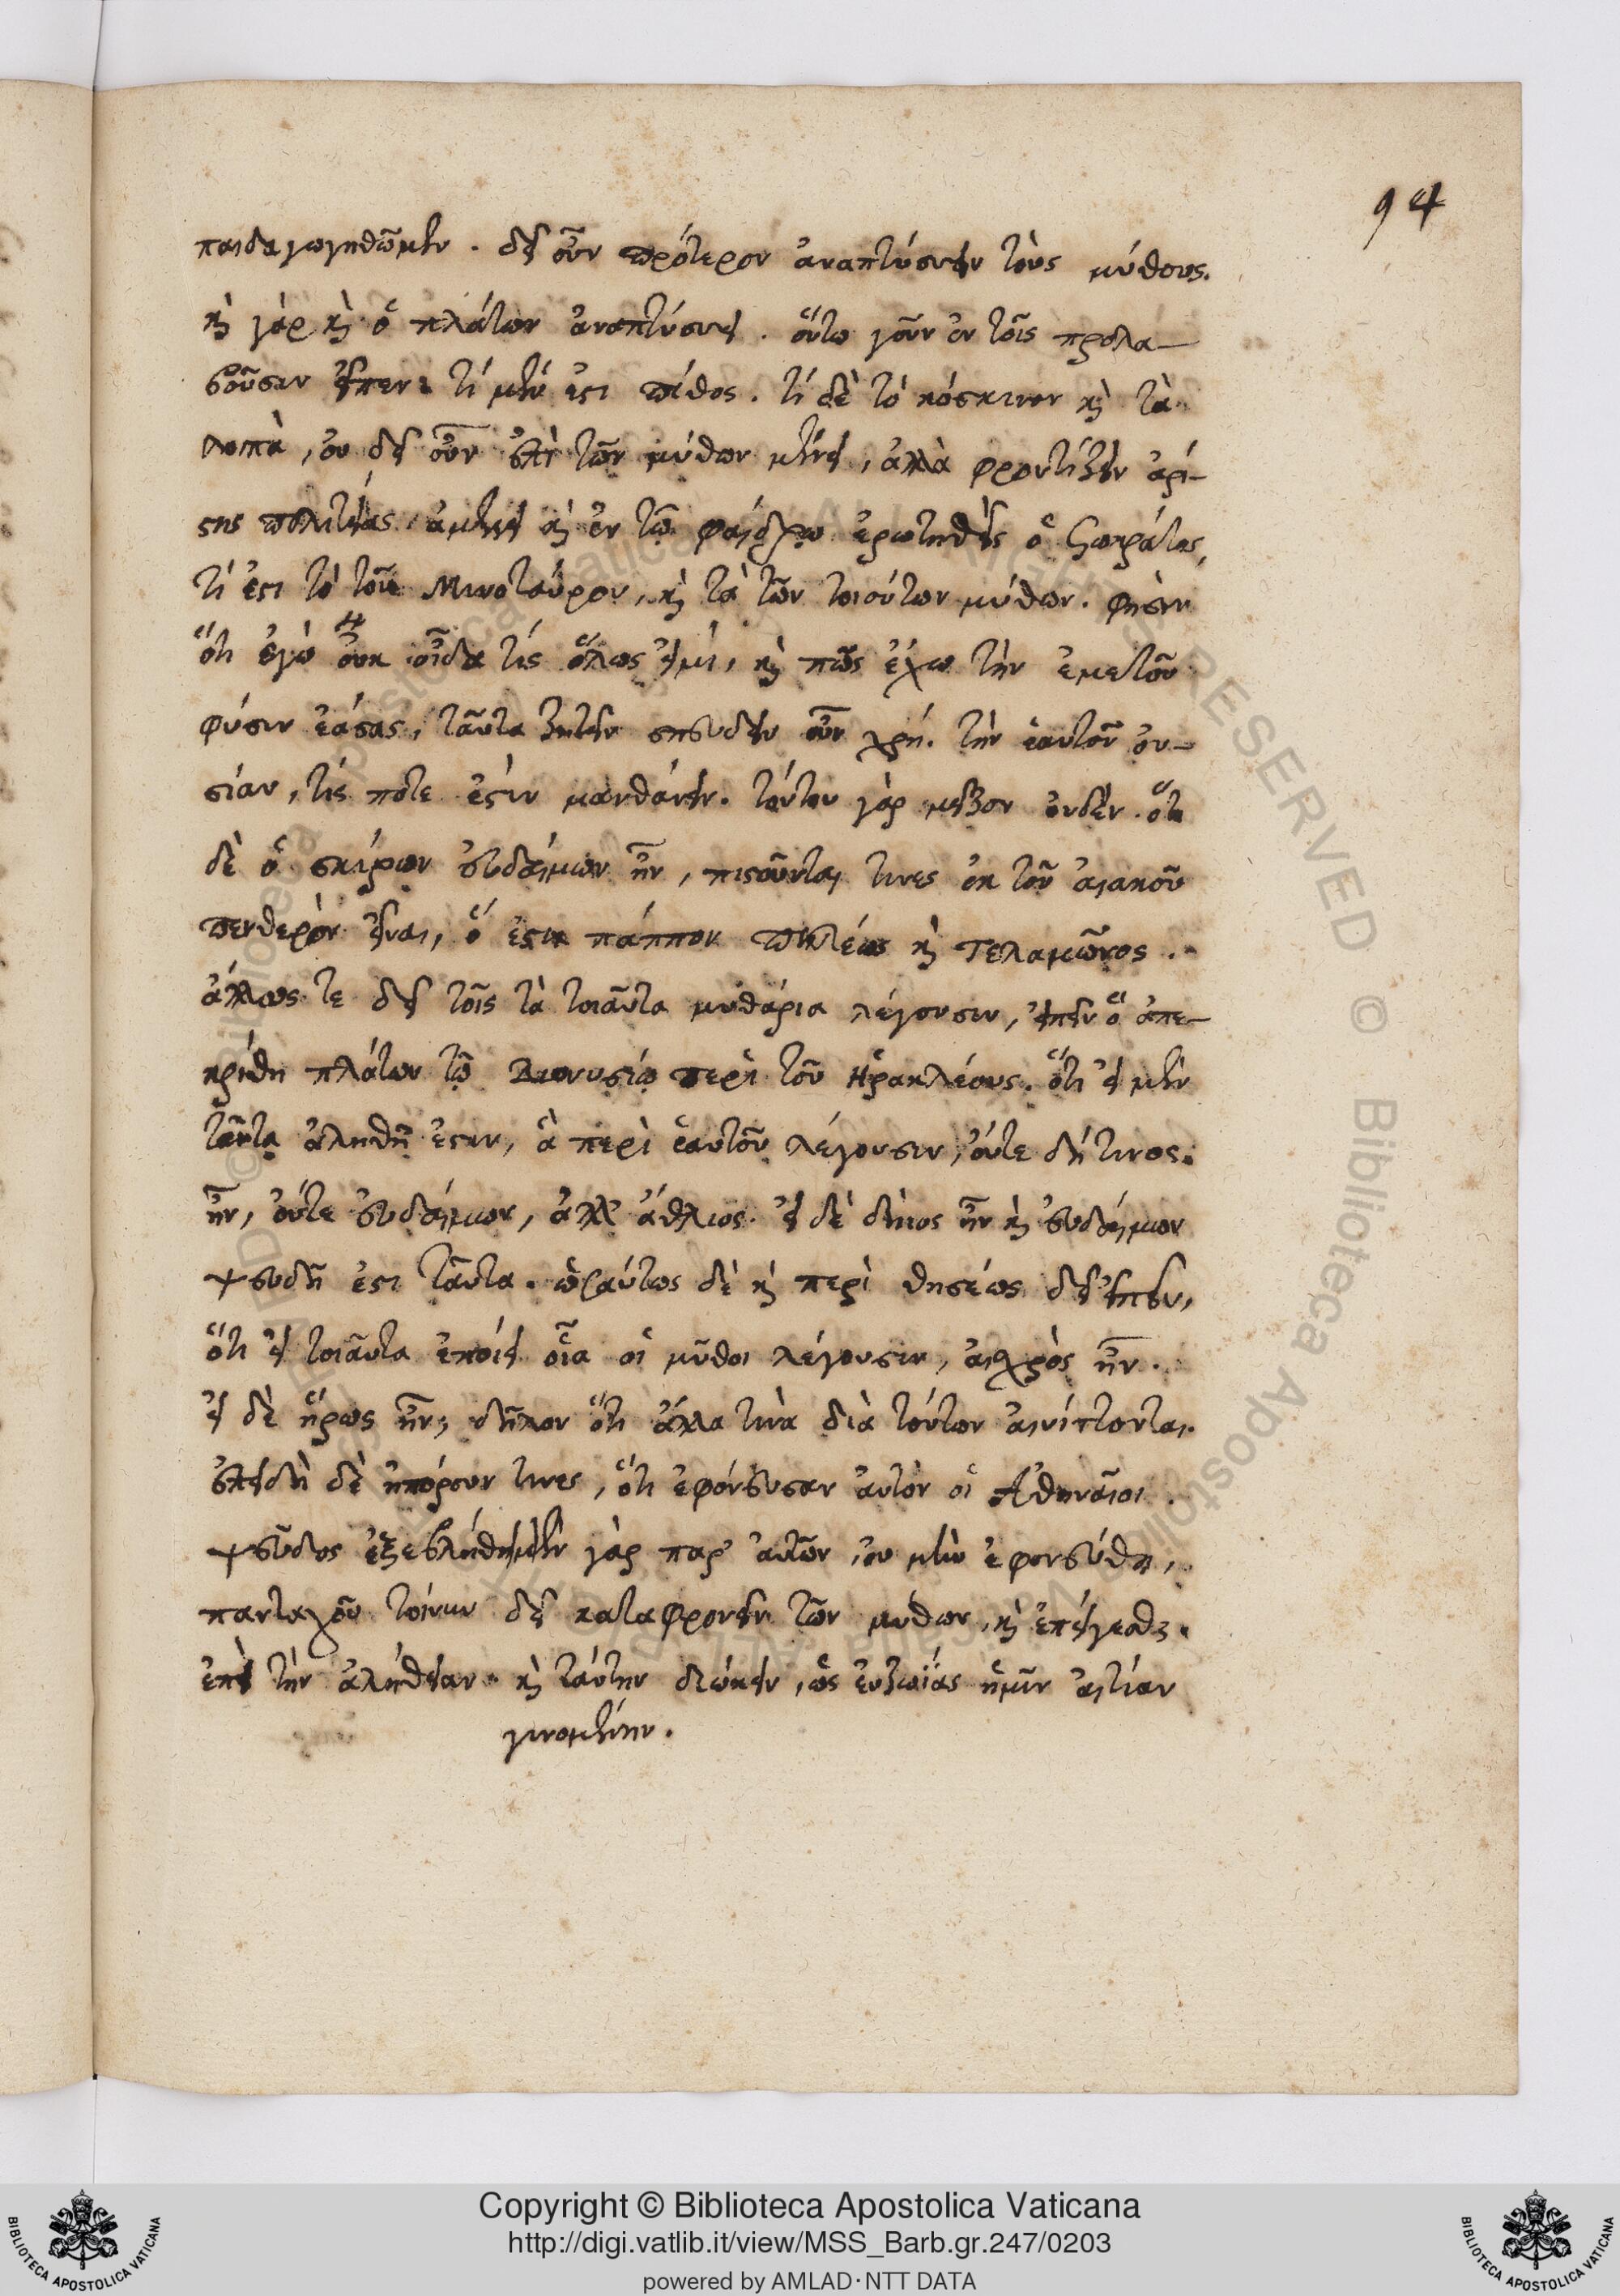 94
παιδαγωγηθῶμεν. δεῖ οὖν πρότερον ἀναπτύσσειν τοὺς μύθους.
καὶ γὰρ καὶ ὁ πλάτων ἀναπτύσσει. οὕτω γοῦν ἐν τοῖς προλα-
βοῦσιν εἶπεν· τί μέν ἐστι πίθος. τί δὲ τὸ κόσκινον καὶ τὰ
λοιπὰ, οὐ δεῖ οὖν ἐπὶ τῶν μύθων μένειν, ἀλλὰ φροντίζειν ἀρί-
στης πολιτείας. ἀμέλει καὶ ἐν τῷ φαίδρῳ ἐρωτηθεὶς ὁ Σωκράτης,
τί ἐστι τὸ τοῦ Μινοταύρου, καὶ τὰ τῶν τοιούτων μύθων. φησὶν
ὅτι ἐγὼ οὐκ οἶδα τίς ὅλως εἰμὶ, καὶ πῶς ἔχω τὴν ἐμαυτοῦ
φύσιν ἐάσας, ταῦτα ζητεῖν σπεύδειν οὖν χρή. τὴν ἑαυτοῦ οὐ-
σίαν, τίς ποτε ἐστὶν μανθάνειν. τούτου γὰρ μεῖζον οὐδέν. ὅτι
δὲ ὁ σκίρων εὐδαίμων ἦν, πιστοῦνται τινες ἐκ τοῦ αἰακοῦ
πενθερὸν εἶναι, ὅ ἐστιν πάππον πηλέως καὶ Τελαμῶνος.
ἄλλως τε δεῖ τοῖς τὰ τοιαῦτα μυθάρια λέγουσιν, εἰπεῖν ὃ ἀπε-
κρίθη πλάτων τῷ Διονυσίῳ περὶ τοῦ Ἡρακλέους. ὅτι εἰ μὲν
ταῦτα ἀληθῆ ἐστιν, ἃ περὶ ἑαυτοῦ λέγουσιν, οὔτε δήτινος
ἦν, οὔτε εὐδαίμων, ἀλλ' ἄθλιος. εἰ δὲ δῖιος ἦν καὶ εὐδαίμων
ψευδῆ ἐστι ταῦτα. ὡσαύτως δὲ καὶ περὶ θησέως δεῖ εἰπεῖν,
ὅτι εἰ τοιαῦτα ἐποίει οἷα οἱ μῦθοι λέγουσιν, αἰσχρὸς ἦν.
εἰ δὲ ἥρως ἦν, δῆλον ὅτι ἄλλα τινὰ διὰ τούτων αἰνίττονται.
ἐπειδὴ δὲ ἠπόρουν τινες, ὅτι ἐφόνευσαν αὐτὸν οἱ Ἀθηναῖοι.
ψεῦδος ἐξεβλήθη μὲν γὰρ παρ' αὐτῶν, οὐ μὴν ἐφονεύθη,
πανταχοῦ τοίνυν δεῖ καταφρονεῖν τῶν μύθων, καὶ ἐπείγεσθαι
ἐπὶ τὴν ἀλήθειαν. καὶ ταύτην διώκειν, ὡς εὐζωΐας ἡμῖν αἰτίαν
γινομένην.
Copyright © Biblioteca Apostolica Vaticana
http://digi.vatlib.it/view/MSS_Barb.gr.247/0203
powered by AMLAD·NTT DATA
BIBLIOTECA APOSTOLICA VATICANA
BIBLIOTECA APOSTOLICA VATICANA